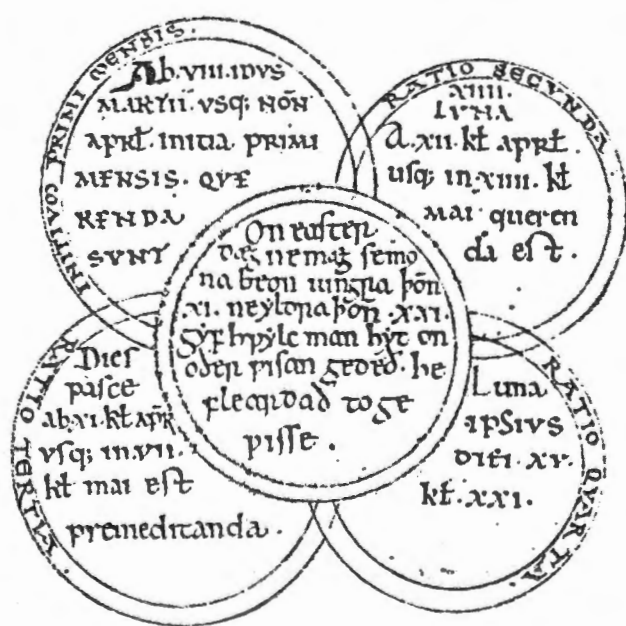 PRIMI MENSIS.
Ab. VIII. IDVS
MARTII. VSQ; NON̄
APRꝆ. INITIA PRIMI
MENSIS. QVE
RENDA
SVNT
RATIO SECVNDA
XIIII.
LVNA
A. XII. kꝉ aprꝉ.
usq; in. XIIII. kꝉ
MAI queren
da est.
On easter
dæg ne mæg se mo
na beon iungra þoñ
.XI. ne yldra þoñ .XXI.
Gyf hƿylc man hyt on
oðer ƿisan gedeð. he
fleardað to ge
ƿisse.
RATIO TERTIA.
Dies
pasce
ab. XI. kꝉ apr̄
usq; in. VII.
kꝉ mai est
premeditanda.
RATIO QVARTA.
Luna
IPSIVS
DIEI. XV.
kꝉ. XXI.